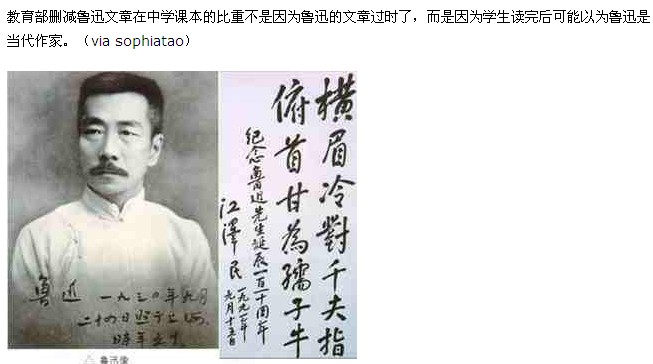 教育部删减鲁迅文章在中学课本的比重不是因为鲁迅的文章过时了，而是因为学生读完后可能以为鲁迅是
当代作家。（via sophiatao）
鲁迅 一九三〇年九月
二十四日照于上海，
時年五十
△ 鲁迅像
横眉冷對千夫指
俯首甘為孺子牛
纪念鲁迅先生诞辰一百一十周年
江澤民
一九九一年
九月十五日